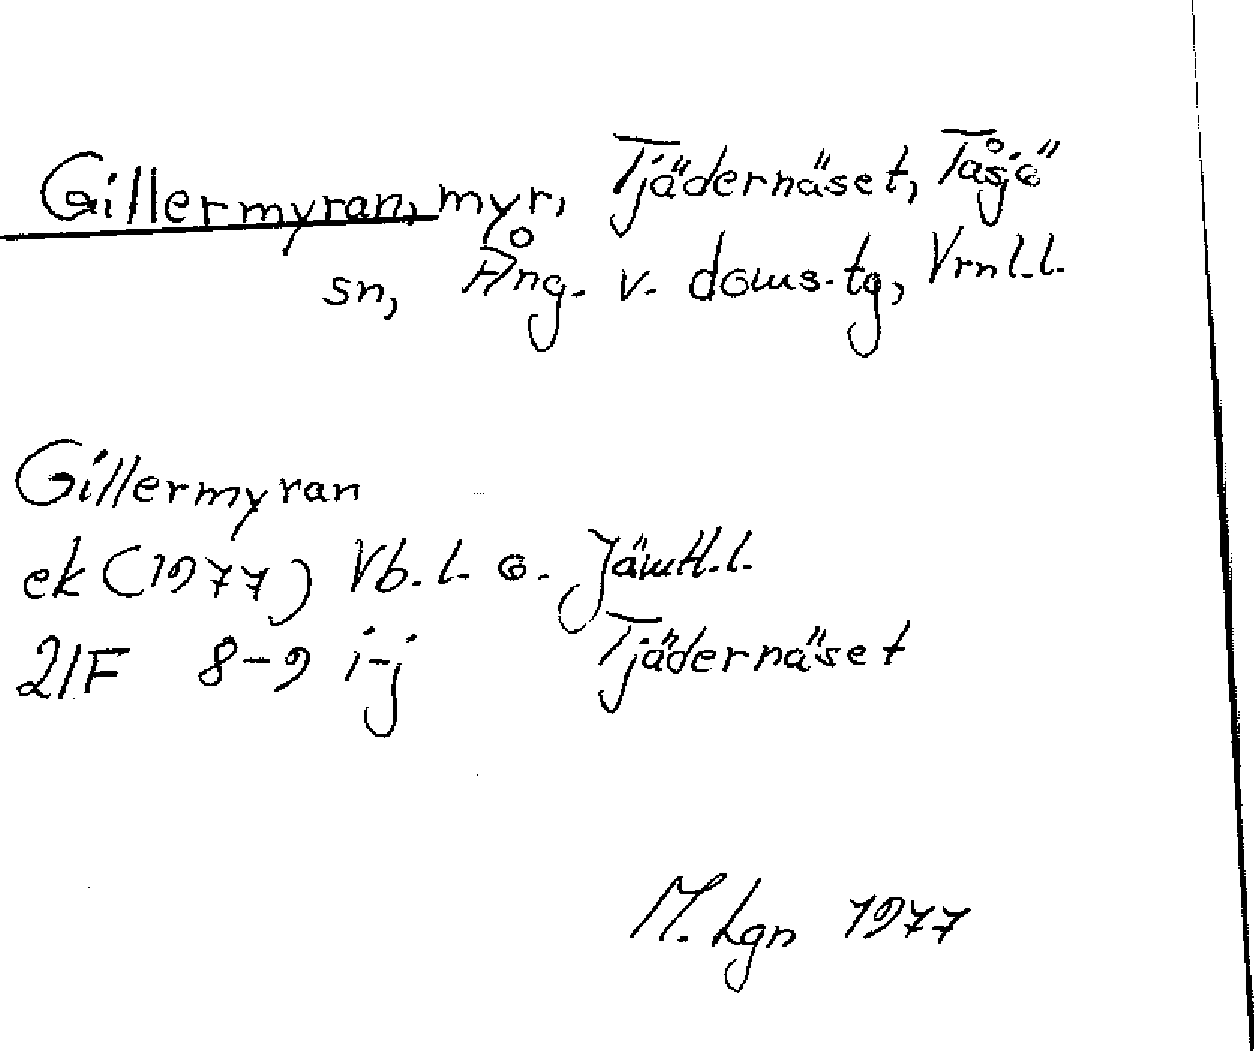 Gillermyran, myr, Tjädernäset, Tåsjö
sn, Ång. v. doms.tg, Vrnl.l.
Gillermyran
ek (1977) Vb. l. o. Jämtl.l.
21F 8-9 i-j Tjädernäset
M. Lgn 1977